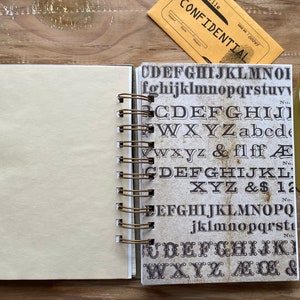 File
CONFIDENTIAL
CDEFGHIJKLMNO
fghijklmnopqrstuv
No.
CDEFGHIJ
WXYZ abcde
wxyz & flff Æ
No.
CDEFGHIJKLMN
XYZ &$ 12
No.
BCDEFGHIJKLMNOPQ
jklmnopqrst
No.
CDEFGHIJKL
WXYZ ÆŒ &